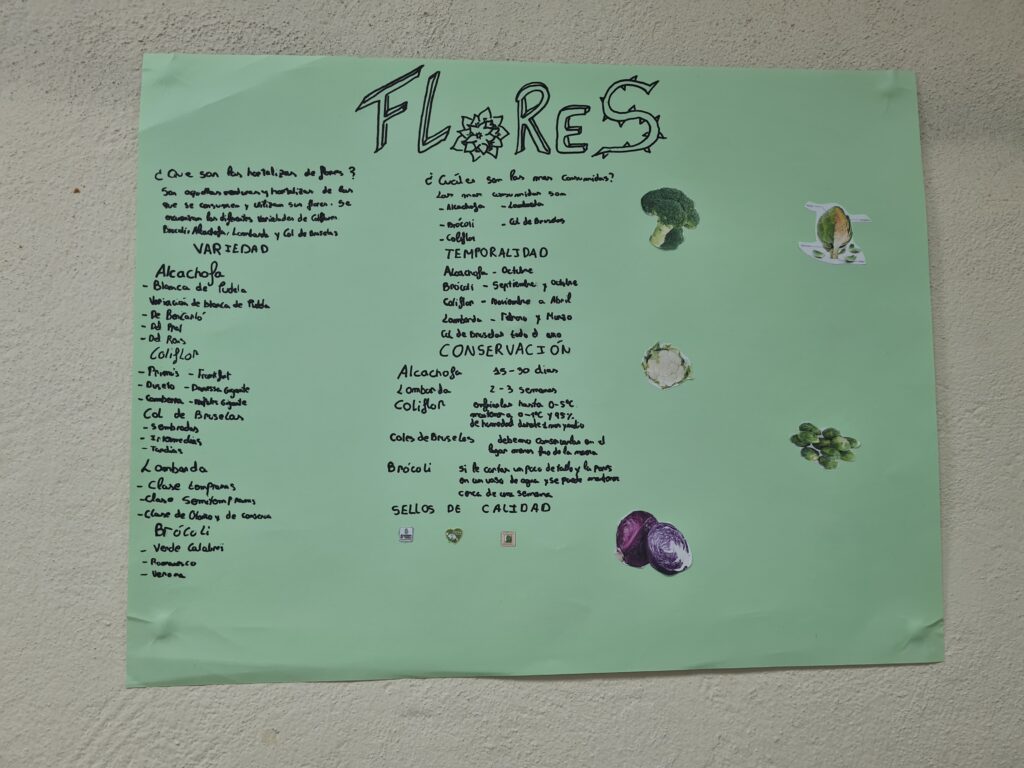 FLORES
¿Que son las hortalizas de flores?
Son aquellas verduras y hortalizas de las
que se consumen y utilizan sus flores. Se
encuentran las diferentes variedades de Coliflores
Brocoli, Alcachofa, Lombarda y Col de Bruselas
VARIEDAD
Alcachofa
- Blanca de Tudela
Variación de blanca de Tudela
- De Benicarló
- Del Prat
- Del Rais
Coliflor
- Primus - Frankfurt
- Duseto - Danessa Gigante
- Camberra - Gigante
Col de Bruselas
- Sembradas
- Intermedias
- Tardias
Lombarda
- Clase Tempranas
- Clase Semitempranas
- Clase de Otoño y de conserva
Brócoli
- Verde Calabres
- Romanesco
- Verona
¿Cuáles son las mas consumidas?
Las mas consumidas son
- Alcachofa - Lombarda
- Brócoli - Col de Bruselas
- Coliflor
TEMPORALIDAD
Alcachofa - Octubre
Brócoli - Septiembre y Octubre
Coliflor - Noviembre a Abril
Lombarda - Febrero y Marzo
Col de Bruselas todo el año
CONSERVACIÓN
Alcachofa 15-30 dias
Lombarda 2-3 semanas
Coliflor enfriarlas hasta 0-5ºC
mantener a 0-1ºC y 95%
de humedad durante 1 mes y medio
Coles de Bruselas debemos conservarlas en el
lugar menos frio de la nevera
Brócoli si le cortas un poco de tallo y la pones
en un vaso de agua y se puede mantener
cerca de una semana
SELLOS DE CALIDAD